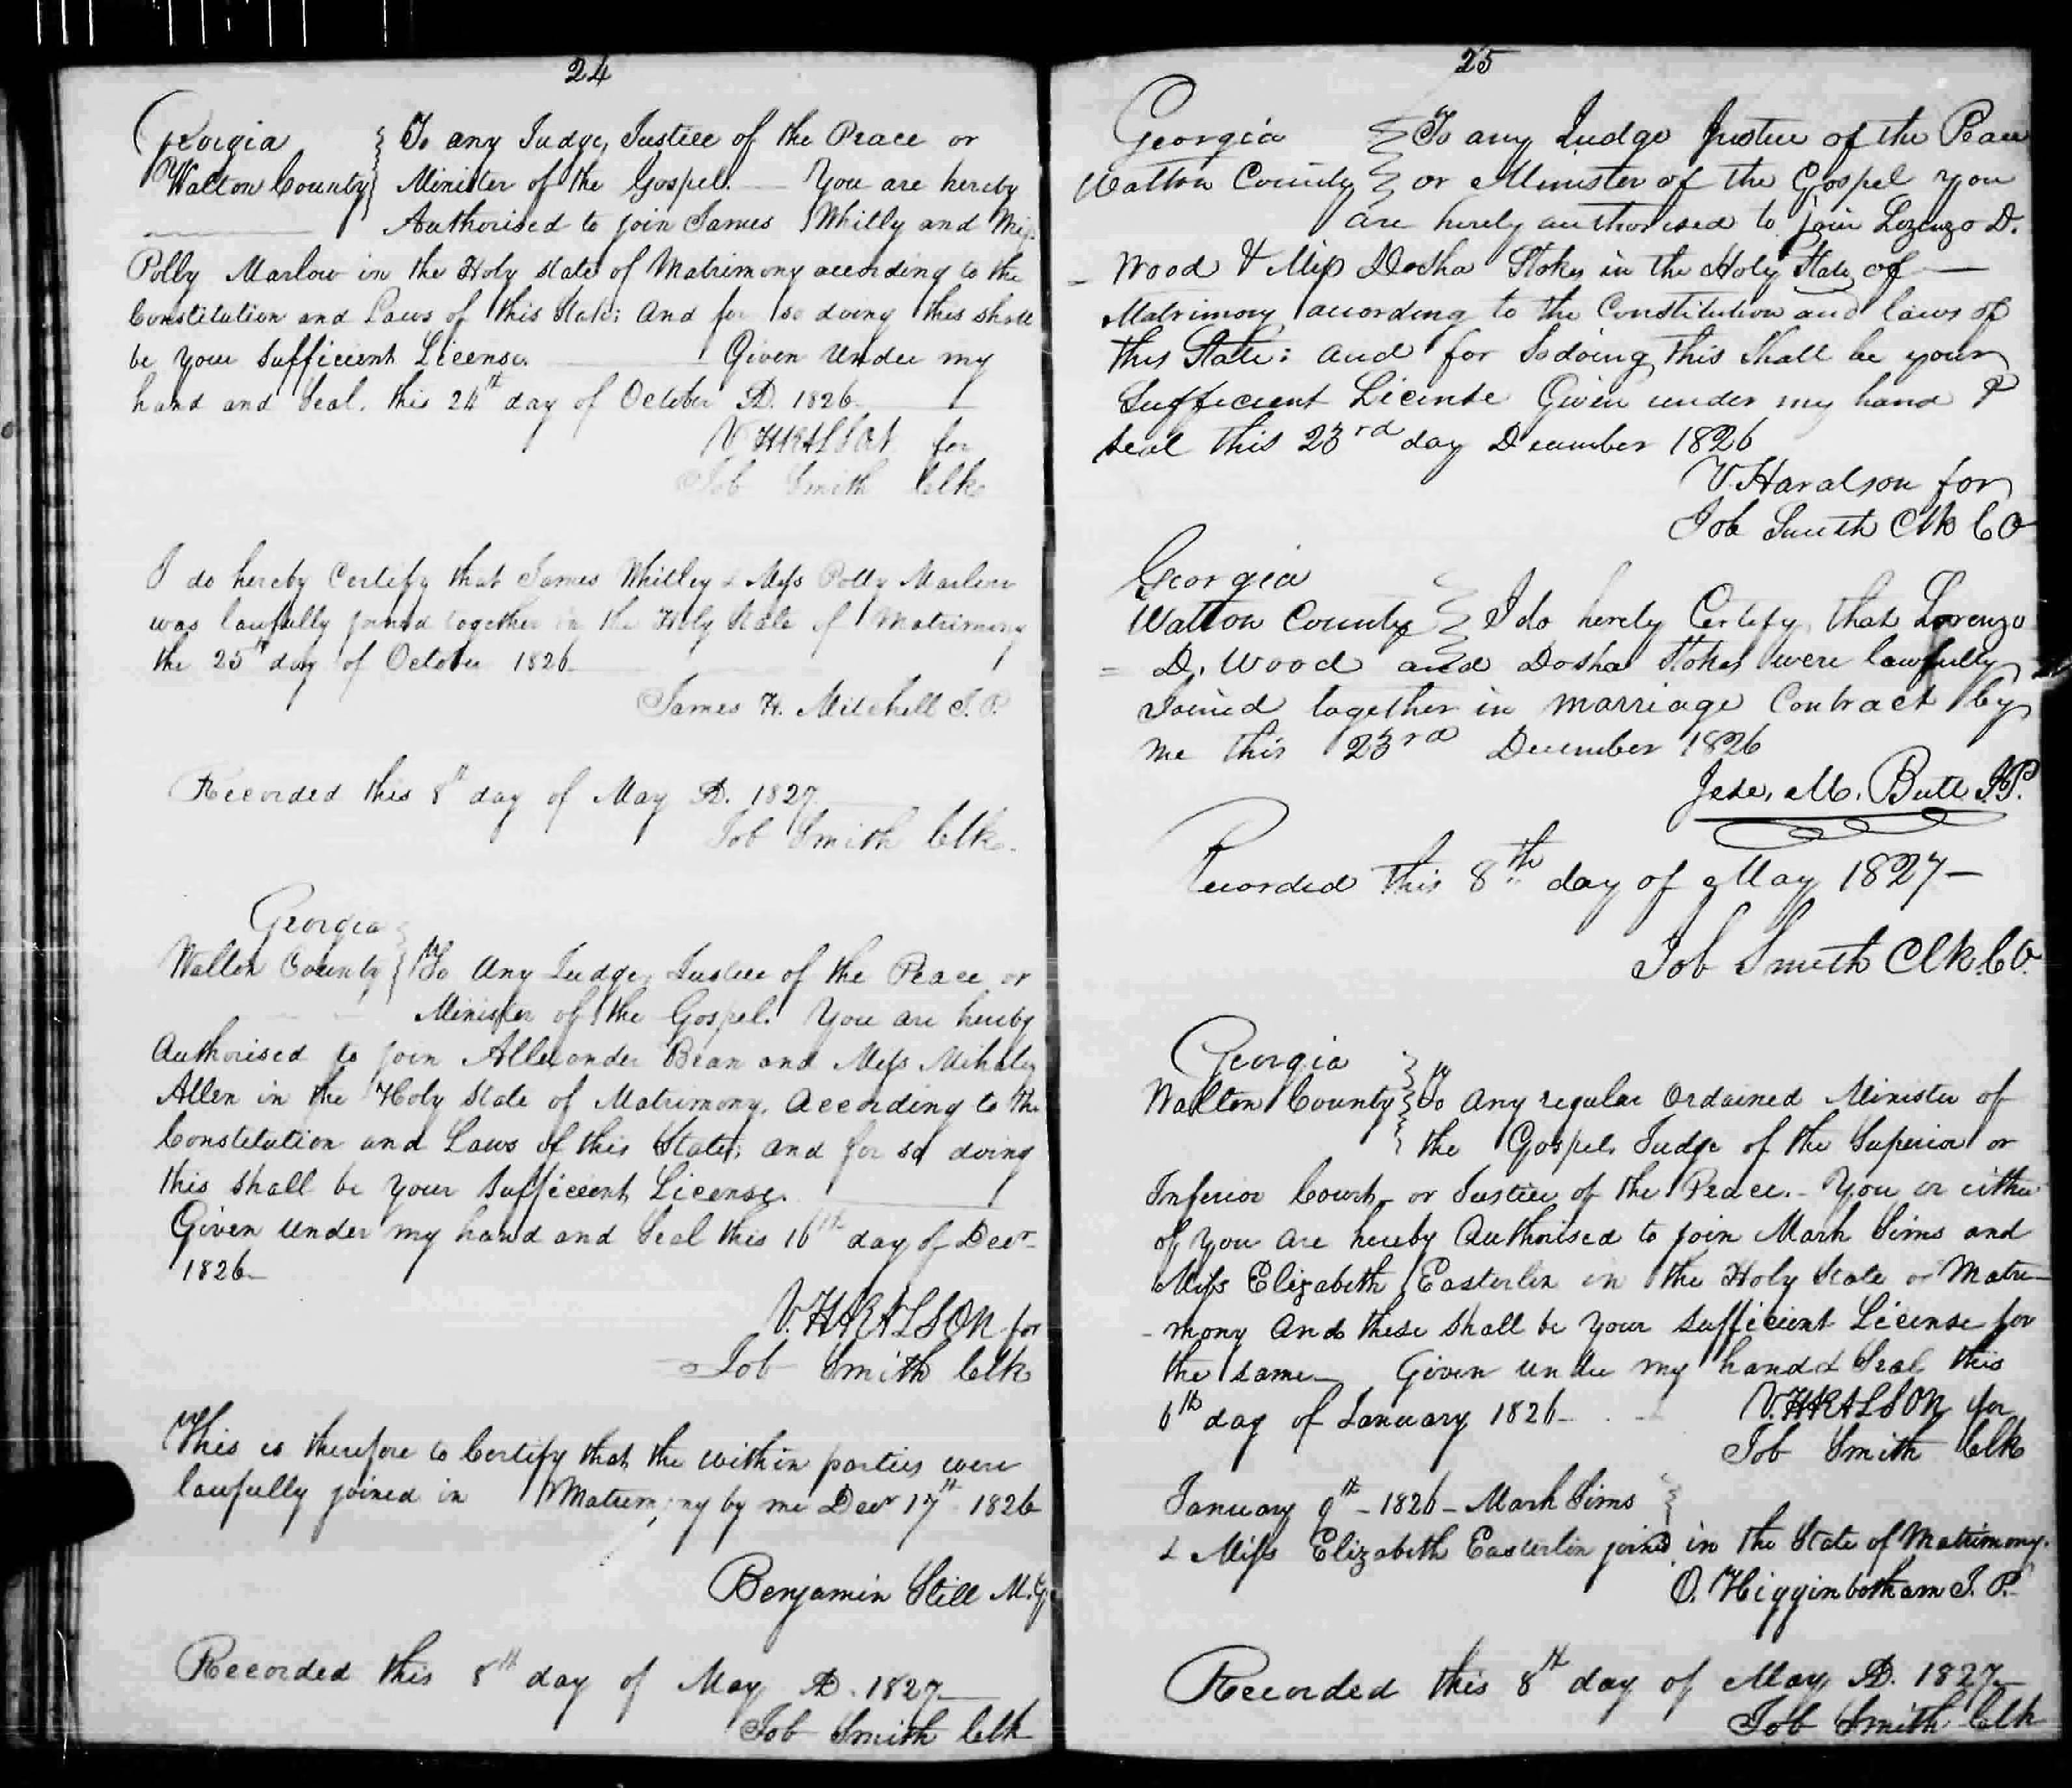 24
Georgia } To any Judge, Justice of the Peace or
Walton County } Minister of the Gospel. — You are hereby
Authorised to join James Whilly and Miss
Polly Marlow in the Holy state of Matrimony according to the
Constitution and Laws of this State; And for so doing this shall
be your Sufficient License. — Given Under my
hand and Seal. this 24th day of October AD. 1826
V HRALSON for
Job Smith Clk
I do hereby Certify that James Whilley & Miss Polly Marlow
was lawfully joined together in the Holy State of Matrimony
the 25th day of October 1826
James H. Mitchell J. P.
Recorded this 8th day of May AD. 1827
Job Smith Clk.
Georgia
Walton County } To Any Judge, Justice of the Peace or
Minister of the Gospel. You are hereby
Authorised to join Allexander Bean and Miss
Allen in the Holy State of Matrimony. According to the
Constitution and Laws of this State; and for so doing
this shall be your Sufficient License.
Given under my hand and Seal this 16th day of Decr
1826
V. HRALSON for
Job Smith Clk
This is therefore to Certify that the within parties were
lawfully joined in Matrimony by me Decr 17th 1826
Benjamin Still M.G.
Recorded this 8th day of May AD. 1827
Job Smith Clk
25
Georgia } To any Judge Justice of the Peace
Walton County } or Minister of the Gospel you
are herely authorised to join Lozenzo D.
Wood & Miss Dosha Stokes in the Holy State of —
Matrimony according to the Constitution and laws of
this State: and for So doing this Shall be your
Sufficient License Given under my hand &
seal this 23rd day December 1826
V. Haralson for
Job Smith Clk CO
Georgia
Walton County } I do herely Certify that Lorenzo
D. Wood and Dosha Stokes were lawfully
Joined together in marriage Contract by
me this 23rd December 1826
Jese. M. Butt J.P.
Recorded this 8th day of May 1827—
Job Smith Clk. CO.
Georgia
Walton County } To any regular Ordained Minister of
the Gospel, Judge of the Superior or
Inferior Court, or Justice of the Peace. - You or either
of you are hereby Authorised to join Mark Sims and
Miss Elizabeth Easterlin in the Holy State of Matri-
-mony And these shall be Your sufficient License for
the same. Given under my hand & Seal this
6th day of January 1826
V. HRALSON for
Job Smith Clk
January 9th - 1826 - Mark Sims }
& Miss Elizabeth Easterlin joined in the State of Matrimony.
O. Higginbotham J. P.
Recorded this 8th day of May AD. 1827
Job Smith Clk